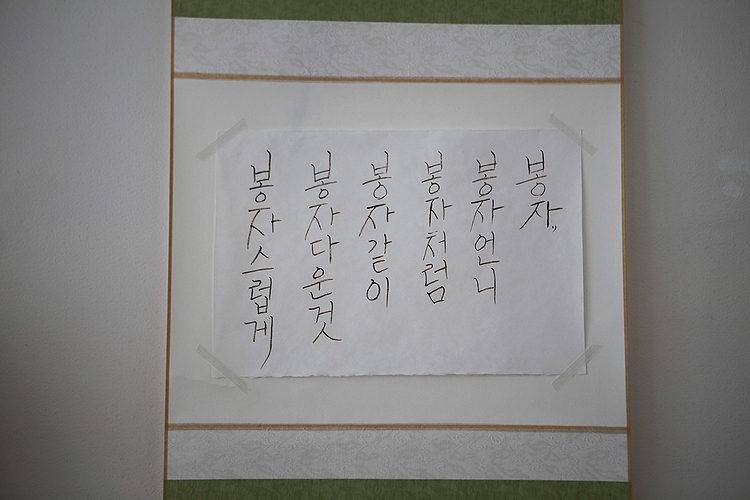 봉자,,
봉자언니
봉자처럼
봉자같이
봉자다운것
봉자스럽게